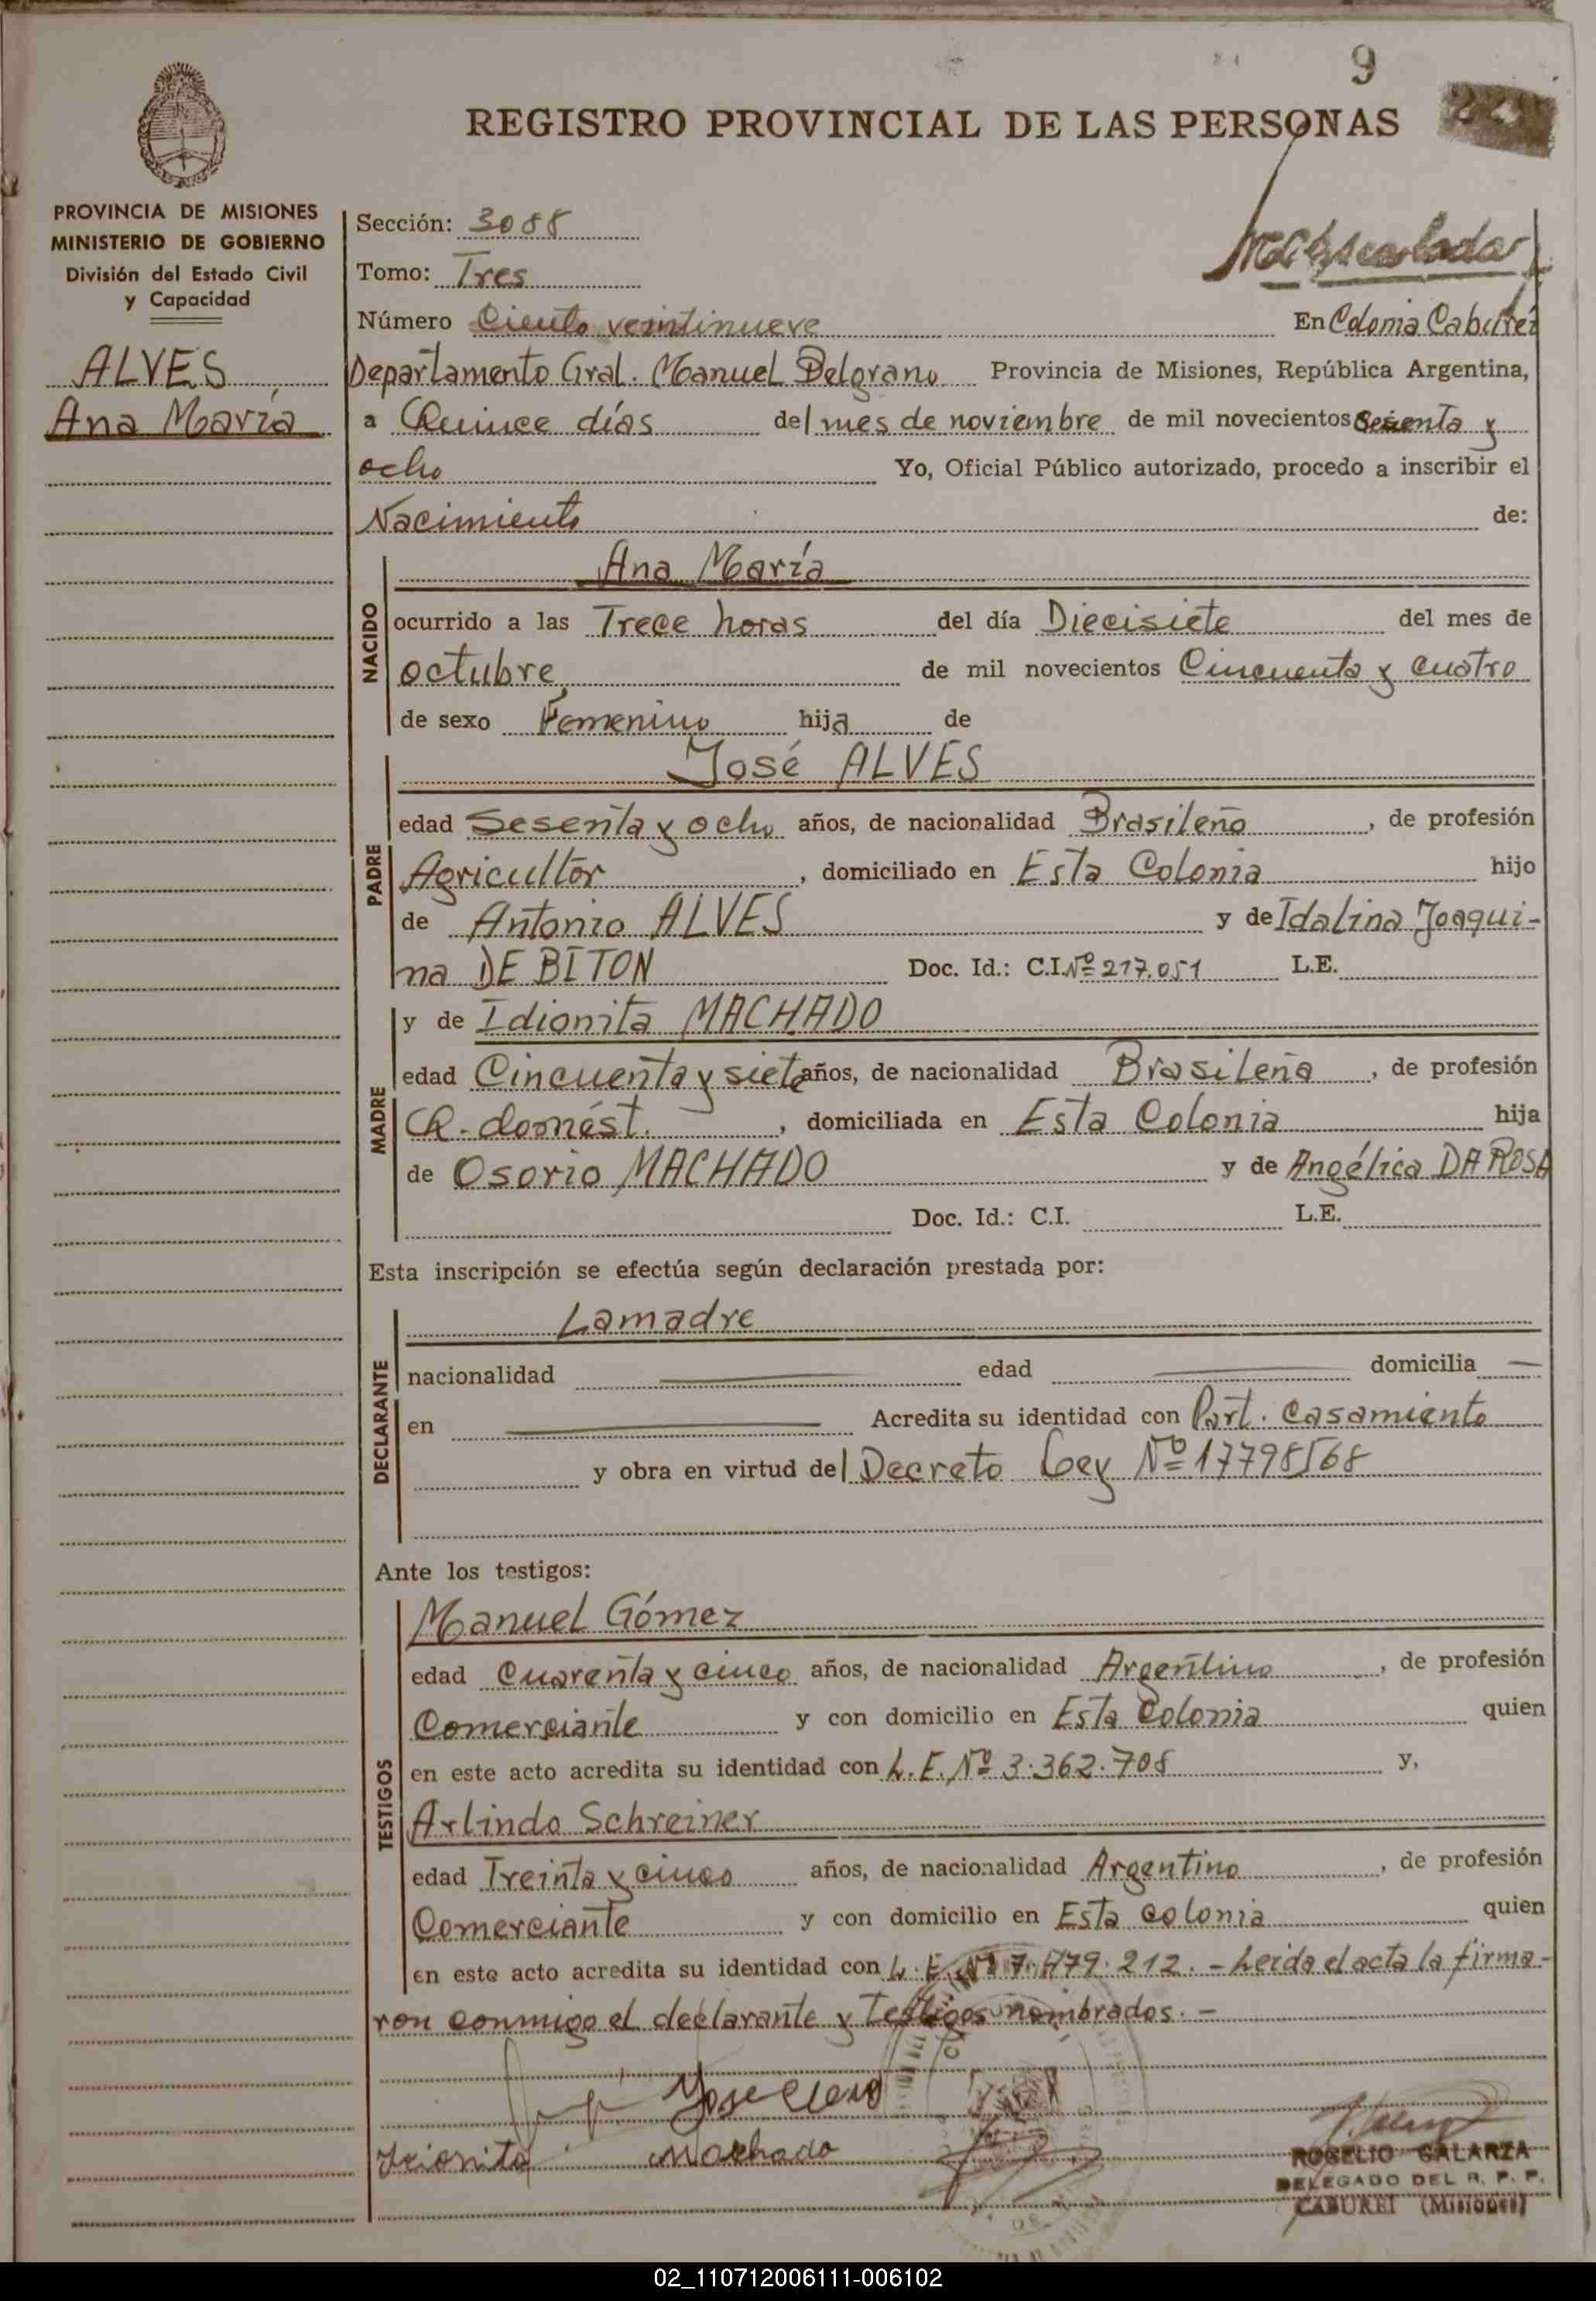 9
REGISTRO PROVINCIAL DE LAS PERSONAS
PROVINCIA DE MISIONES
MINISTERIO DE GOBIERNO
División del Estado Civil
y Capacidad
ALVES
Ana María
Sección: 3088
Tomo: Tres
Número Ciento veintinueve En Colonia Caburéi
Departamento Gral. Manuel Belgrano Provincia de Misiones, República Argentina,
a Quince días del mes de noviembre de mil novecientos Sesenta y
ocho Yo, Oficial Público autorizado, procedo a inscribir el
Nacimiento de:
NACIDO
Ana María
ocurrido a las Trece horas del día Diecisiete del mes de
octubre de mil novecientos Cincuenta y cuatro
de sexo Femenino hija de
PADRE
José ALVES
edad Sesenta y ocho años, de nacionalidad Brasileño, de profesión
Agricultor, domiciliado en Esta Colonia hijo
de Antonio ALVES y de Idalina Joaqui-
na DE BITON Doc. Id.: C.I. Nº 217.051 L.E.
MADRE
y de Idionita MACHADO
edad Cincuenta y siete años, de nacionalidad Brasileña, de profesión
Q. domést., domiciliada en Esta Colonia hija
de Osorio MACHADO y de Angélica DA ROSA
Doc. Id.: C.I. L.E.
Esta inscripción se efectúa según declaración prestada por:
DECLARANTE
La madre
nacionalidad — edad — domicilia —
en — Acredita su identidad con Part. Casamiento
y obra en virtud del Decreto Ley Nº 17798/68
Ante los testigos:
TESTIGOS
Manuel Gómez
edad Cuarenta y cinco años, de nacionalidad Argentino, de profesión
Comerciante y con domicilio en Esta Colonia quien
en este acto acredita su identidad con L.E. Nº 3.362.708 y,
Arlindo Schreiner
edad Treinta y cinco años, de nacionalidad Argentino, de profesión
Comerciante y con domicilio en Esta colonia quien
en este acto acredita su identidad con L.E. Nº 7.479.212.- Leida el acta la firma-
ron conmigo el declarante y Testigos nombrados.-
Machado
ROGELIO GALARZA
DELEGADO DEL R. P. P.
CABUREI (Misiones)
02_110712006111-006102